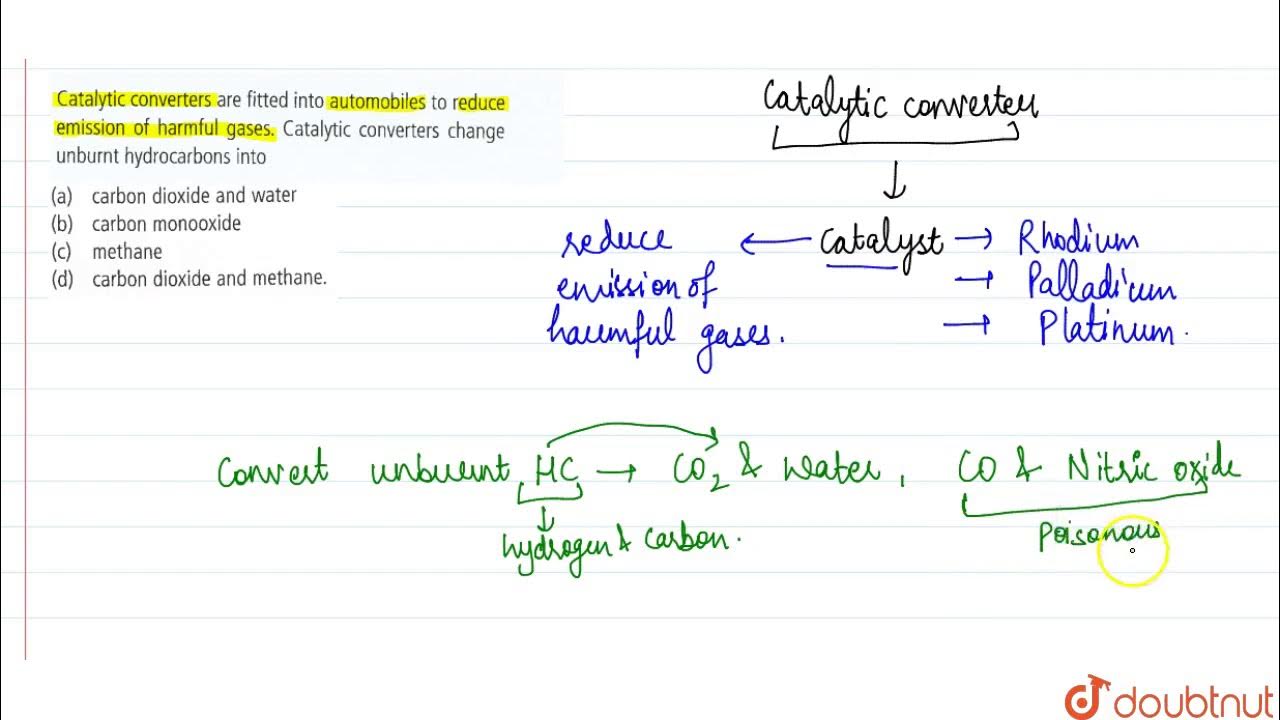 Catalytic converters are fitted into automobiles to reduce
emission of harmful gases. Catalytic converters change
unburnt hydrocarbons into
(a) carbon dioxide and water
(b) carbon monooxide
(c) methane
(d) carbon dioxide and methane.
Catalytic converter
reduce ← Catalyst → Rhodium
emission of → Palladium
harmful gases. → Platinum.
Convert unburnt HC → CO₂ & water, CO & Nitric oxide
hydrogen & carbon.
Poisonous
doubtnut